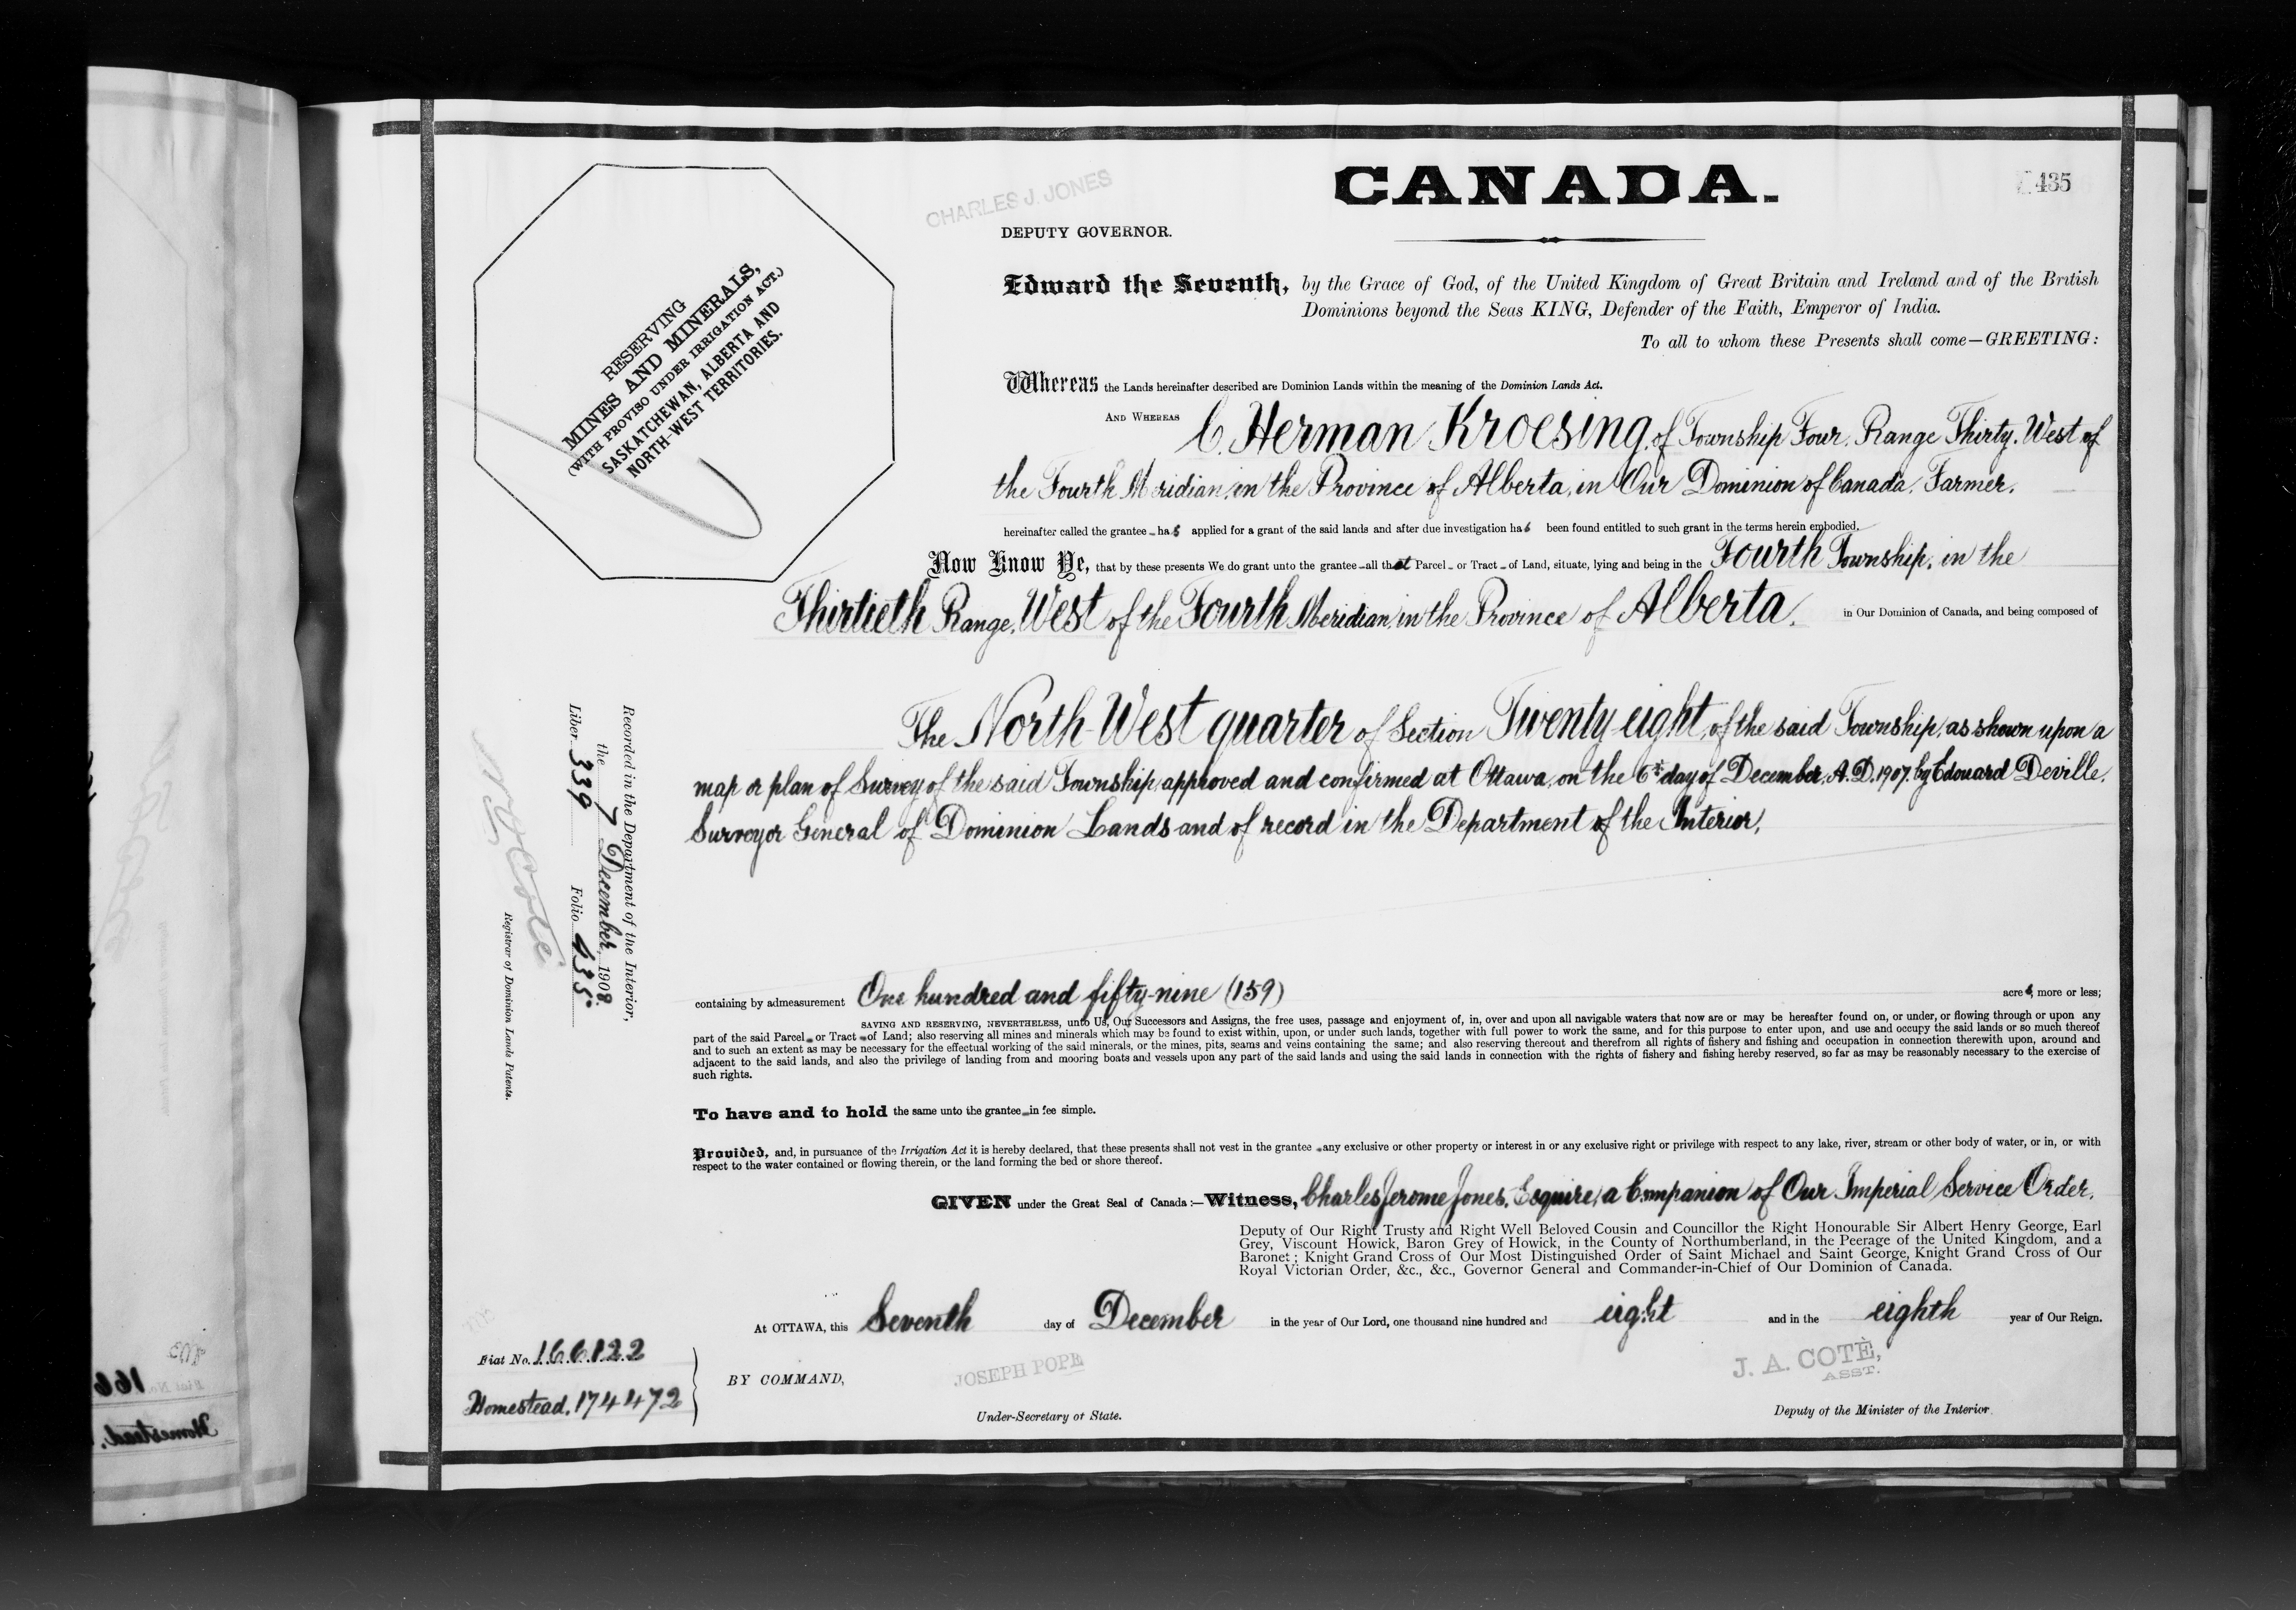 CANADA.
435
CHARLES J. JONES
DEPUTY GOVERNOR.
RESERVING
MINES AND MINERALS,
(WITH PROVISO UNDER IRRIGATION ACT.)
SASKATCHEWAN, ALBERTA AND
NORTH-WEST TERRITORIES.
Edward the Seventh, by the Grace of God, of the United Kingdom of Great Britain and Ireland and of the British
Dominions beyond the Seas KING, Defender of the Faith, Emperor of India.
To all to whom these Presents shall come—GREETING:
Whereas the Lands hereinafter described are Dominion Lands within the meaning of the Dominion Lands Act.
AND WHEREAS C. Herman Kroesing, of Township Four, Range Thirty, West of
the Fourth Meridian, in the Province of Alberta, in Our Dominion of Canada, Farmer,
hereinafter called the grantee has applied for a grant of the said lands and after due investigation has been found entitled to such grant in the terms herein embodied.
Now Know Ye, that by these presents We do grant unto the grantee all that Parcel or Tract of Land, situate, lying and being in the Fourth Township, in the
Thirtieth Range, West of the Fourth Meridian, in the Province of Alberta, in Our Dominion of Canada, and being composed of
The North West quarter of Section Twenty eight, of the said Township, as shown upon a
map or plan of Survey of the said Township approved and confirmed at Ottawa, on the 6th day of December, A.D. 1907, by Edouard Deville,
Surveyor General of Dominion Lands and of record in the Department of the Interior,
containing by admeasurement One hundred and fifty-nine (159) acres, more or less;
SAVING AND RESERVING, NEVERTHELESS, unto Us, Our Successors and Assigns, the free uses, passage and enjoyment of, in, over and upon all navigable waters that now are or may be hereafter found on, or under, or flowing through or upon any
part of the said Parcel or Tract of Land; also reserving all mines and minerals which may be found to exist within, upon, or under such lands, together with full power to work the same, and for this purpose to enter upon, and use and occupy the said lands or so much thereof
and to such an extent as may be necessary for the effectual working of the said minerals, or the mines, pits, seams and veins containing the same; and also reserving thereout and therefrom all rights of fishery and fishing and occupation in connection therewith upon, around and
adjacent to the said lands, and also the privilege of landing from and mooring boats and vessels upon any part of the said lands and using the said lands in connection with the rights of fishery and fishing hereby reserved, so far as may be reasonably necessary to the exercise of
such rights.
To have and to hold the same unto the grantee in fee simple.
Provided, and, in pursuance of the Irrigation Act it is hereby declared, that these presents shall not vest in the grantee any exclusive or other property or interest in or any exclusive right or privilege with respect to any lake, river, stream or other body of water, or in, or with
respect to the water contained or flowing therein, or the land forming the bed or shore thereof.
GIVEN under the Great Seal of Canada:—Witness, Charles Jerome Jones, Esquire, a Companion of Our Imperial Service Order,
Deputy of Our Right Trusty and Right Well Beloved Cousin and Councillor the Right Honourable Sir Albert Henry George, Earl
Grey, Viscount Howick, Baron Grey of Howick, in the County of Northumberland, in the Peerage of the United Kingdom, and a
Baronet; Knight Grand Cross of Our Most Distinguished Order of Saint Michael and Saint George, Knight Grand Cross of Our
Royal Victorian Order, &c., &c., Governor General and Commander-in-Chief of Our Dominion of Canada.
At OTTAWA, this Seventh day of December in the year of Our Lord, one thousand nine hundred and eight and in the eighth year of Our Reign.
BY COMMAND,
JOSEPH POPE
Under-Secretary of State.
J. A. COTÈ,
ASST.
Deputy of the Minister of the Interior
Fiat No. 166122
Homestead. 174472
Recorded in the Department of the Interior,
the 7 December, 1908.
Liber 339 Folio 435
Registrar of Dominion Lands Patents.